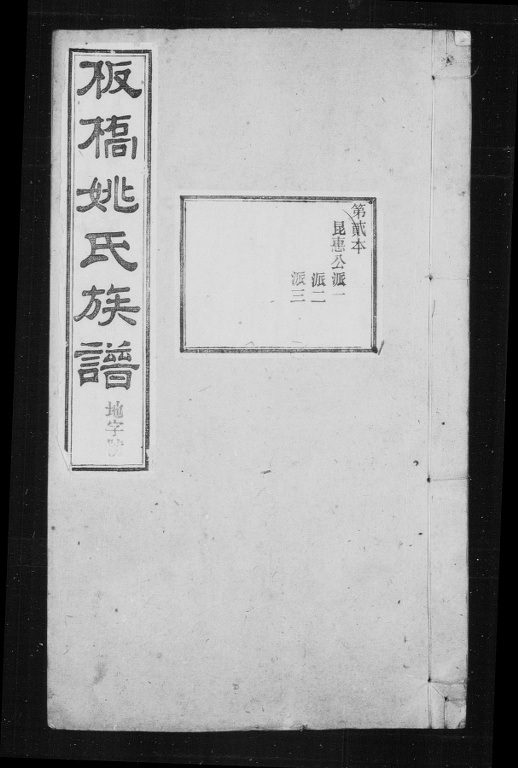 板橋姚氏族譜
地字
第貳本
昆惠公派一
派二
派三